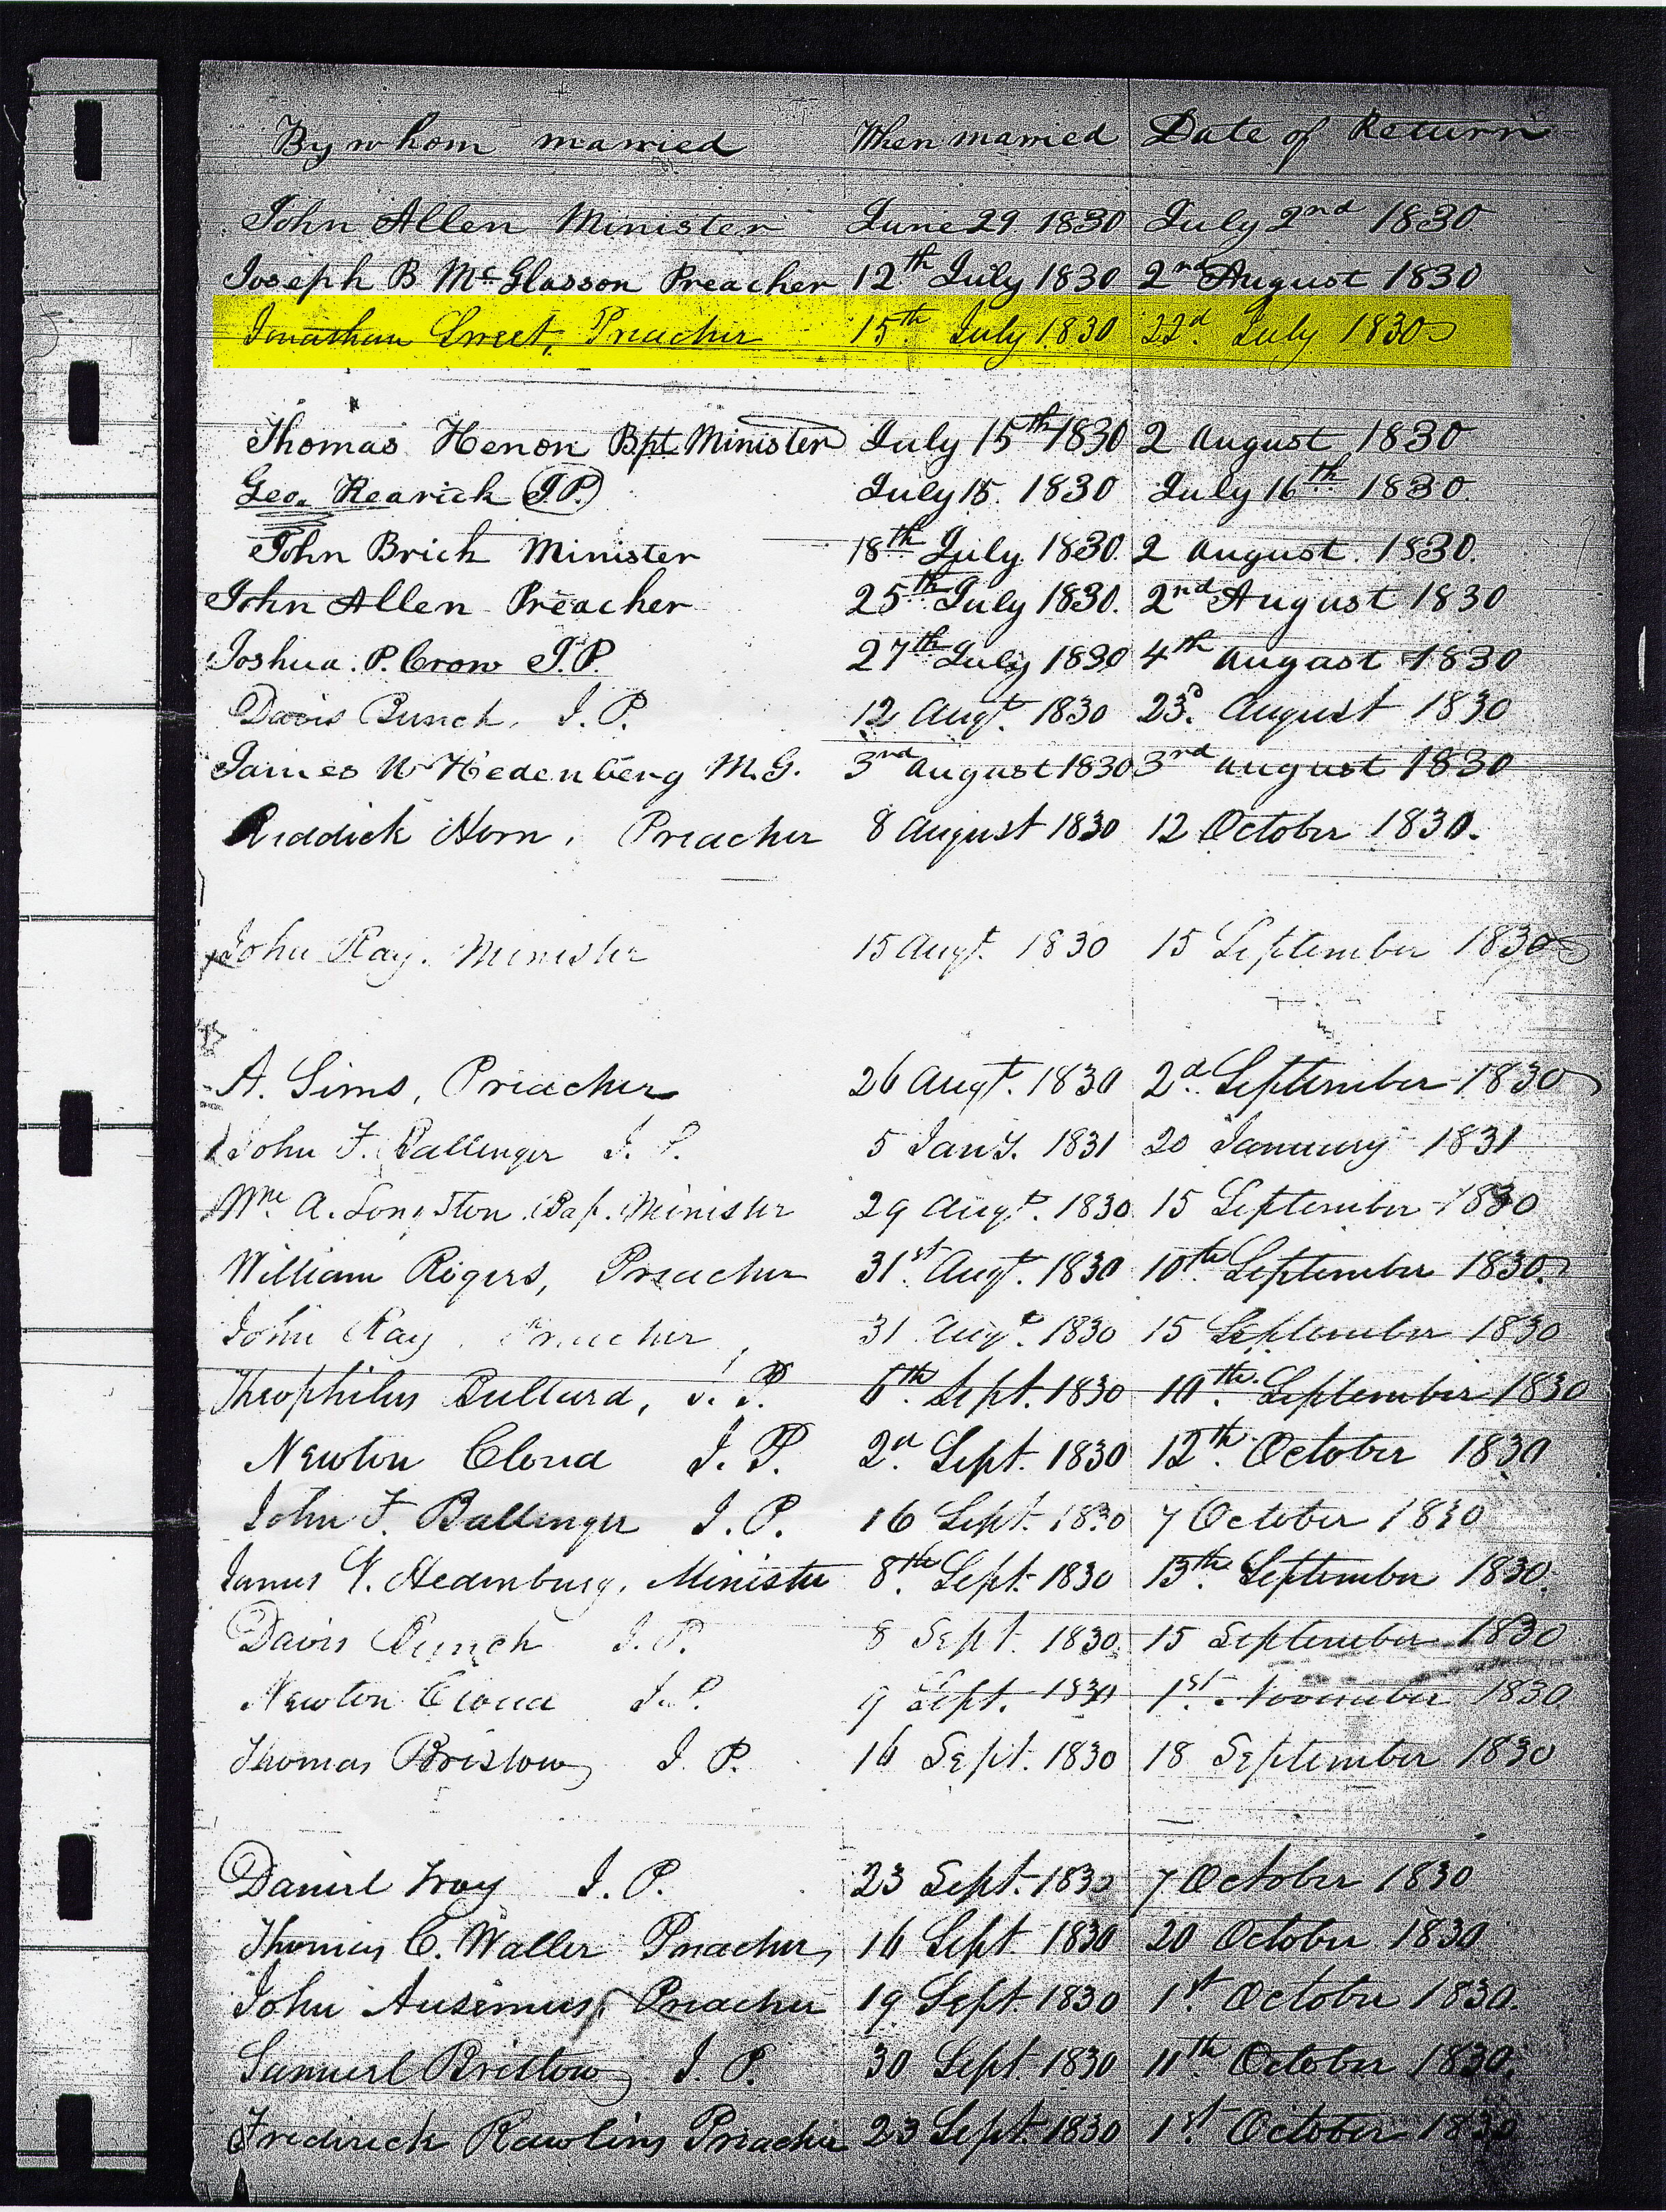 By whom married When married Date of Return
John Allen Minister June 29 1830 July 2nd 1830
Joseph B McGlasson Preacher 12th July 1830 2nd August 1830
Jonathan Sweet, Preacher 15th July 1830 22d July 1830
Thomas Henon Bpt Minister July 15th 1830 2 August 1830
Geo. Rearick J.P. July 15. 1830 July 16th 1830.
John Brich Minister 18th July 1830. 2 August. 1830.
John Allen Preacher 25th July 1830. 2nd August 1830
Joshua. P. Crow J.P. 27th July 1830 4th August 1830
Davis Bunch, J. P. 12 Augt. 1830 23d. August 1830
James W Hedenberg M.G. 3rd August 1830 3rd August 1830
Riddick Horn, Preacher 8 August 1830 12 October 1830.
John Ray. Minister 15 Augt. 1830 15 September 1830
A. Sims, Preacher 26 Augt. 1830 2d. September 1830
John F. Ballenger J. P. 5 Jany. 1831 20 January 1831
Wm. A. Longston Bap. Minister 29 Augt. 1830 15 September 1830
William Rogers, Preacher 31st. Augt. 1830 10th September 1830.
John Ray, Preacher, 31 Augt. 1830 15 September 1830
Theophilus Bullard, J. P. 6th. Sept. 1830 10th. September 1830
Newton Cloud J. P. 2d. Sept. 1830 12th. October 1830
John F. Ballenger J. P. 16 Sept. 1830 7 October 1830
James Hedenburg, Minister 8th. Sept. 1830 13th. September 1830.
Davis Bunch J. P. 8 Sept. 1830. 15 September 1830
Newton Cloud J. P. 9 Sept. 1830 1st. November 1830
Thomas Bristow, J. P. 16 Sept. 1830 18 September 1830
Daniel Troy J. P. 23 Sept. 1830 7 October 1830
Thomas C. Waller Preacher, 16 Sept. 1830 20 October 1830
John Preacher 19 Sept. 1830 1st. October 1830.
Samuel Brittow, J. P. 30 Sept. 1830 11th October 1830.
Fredirick Rawlins Preacher 23 Sept. 1830 1st. October 1830